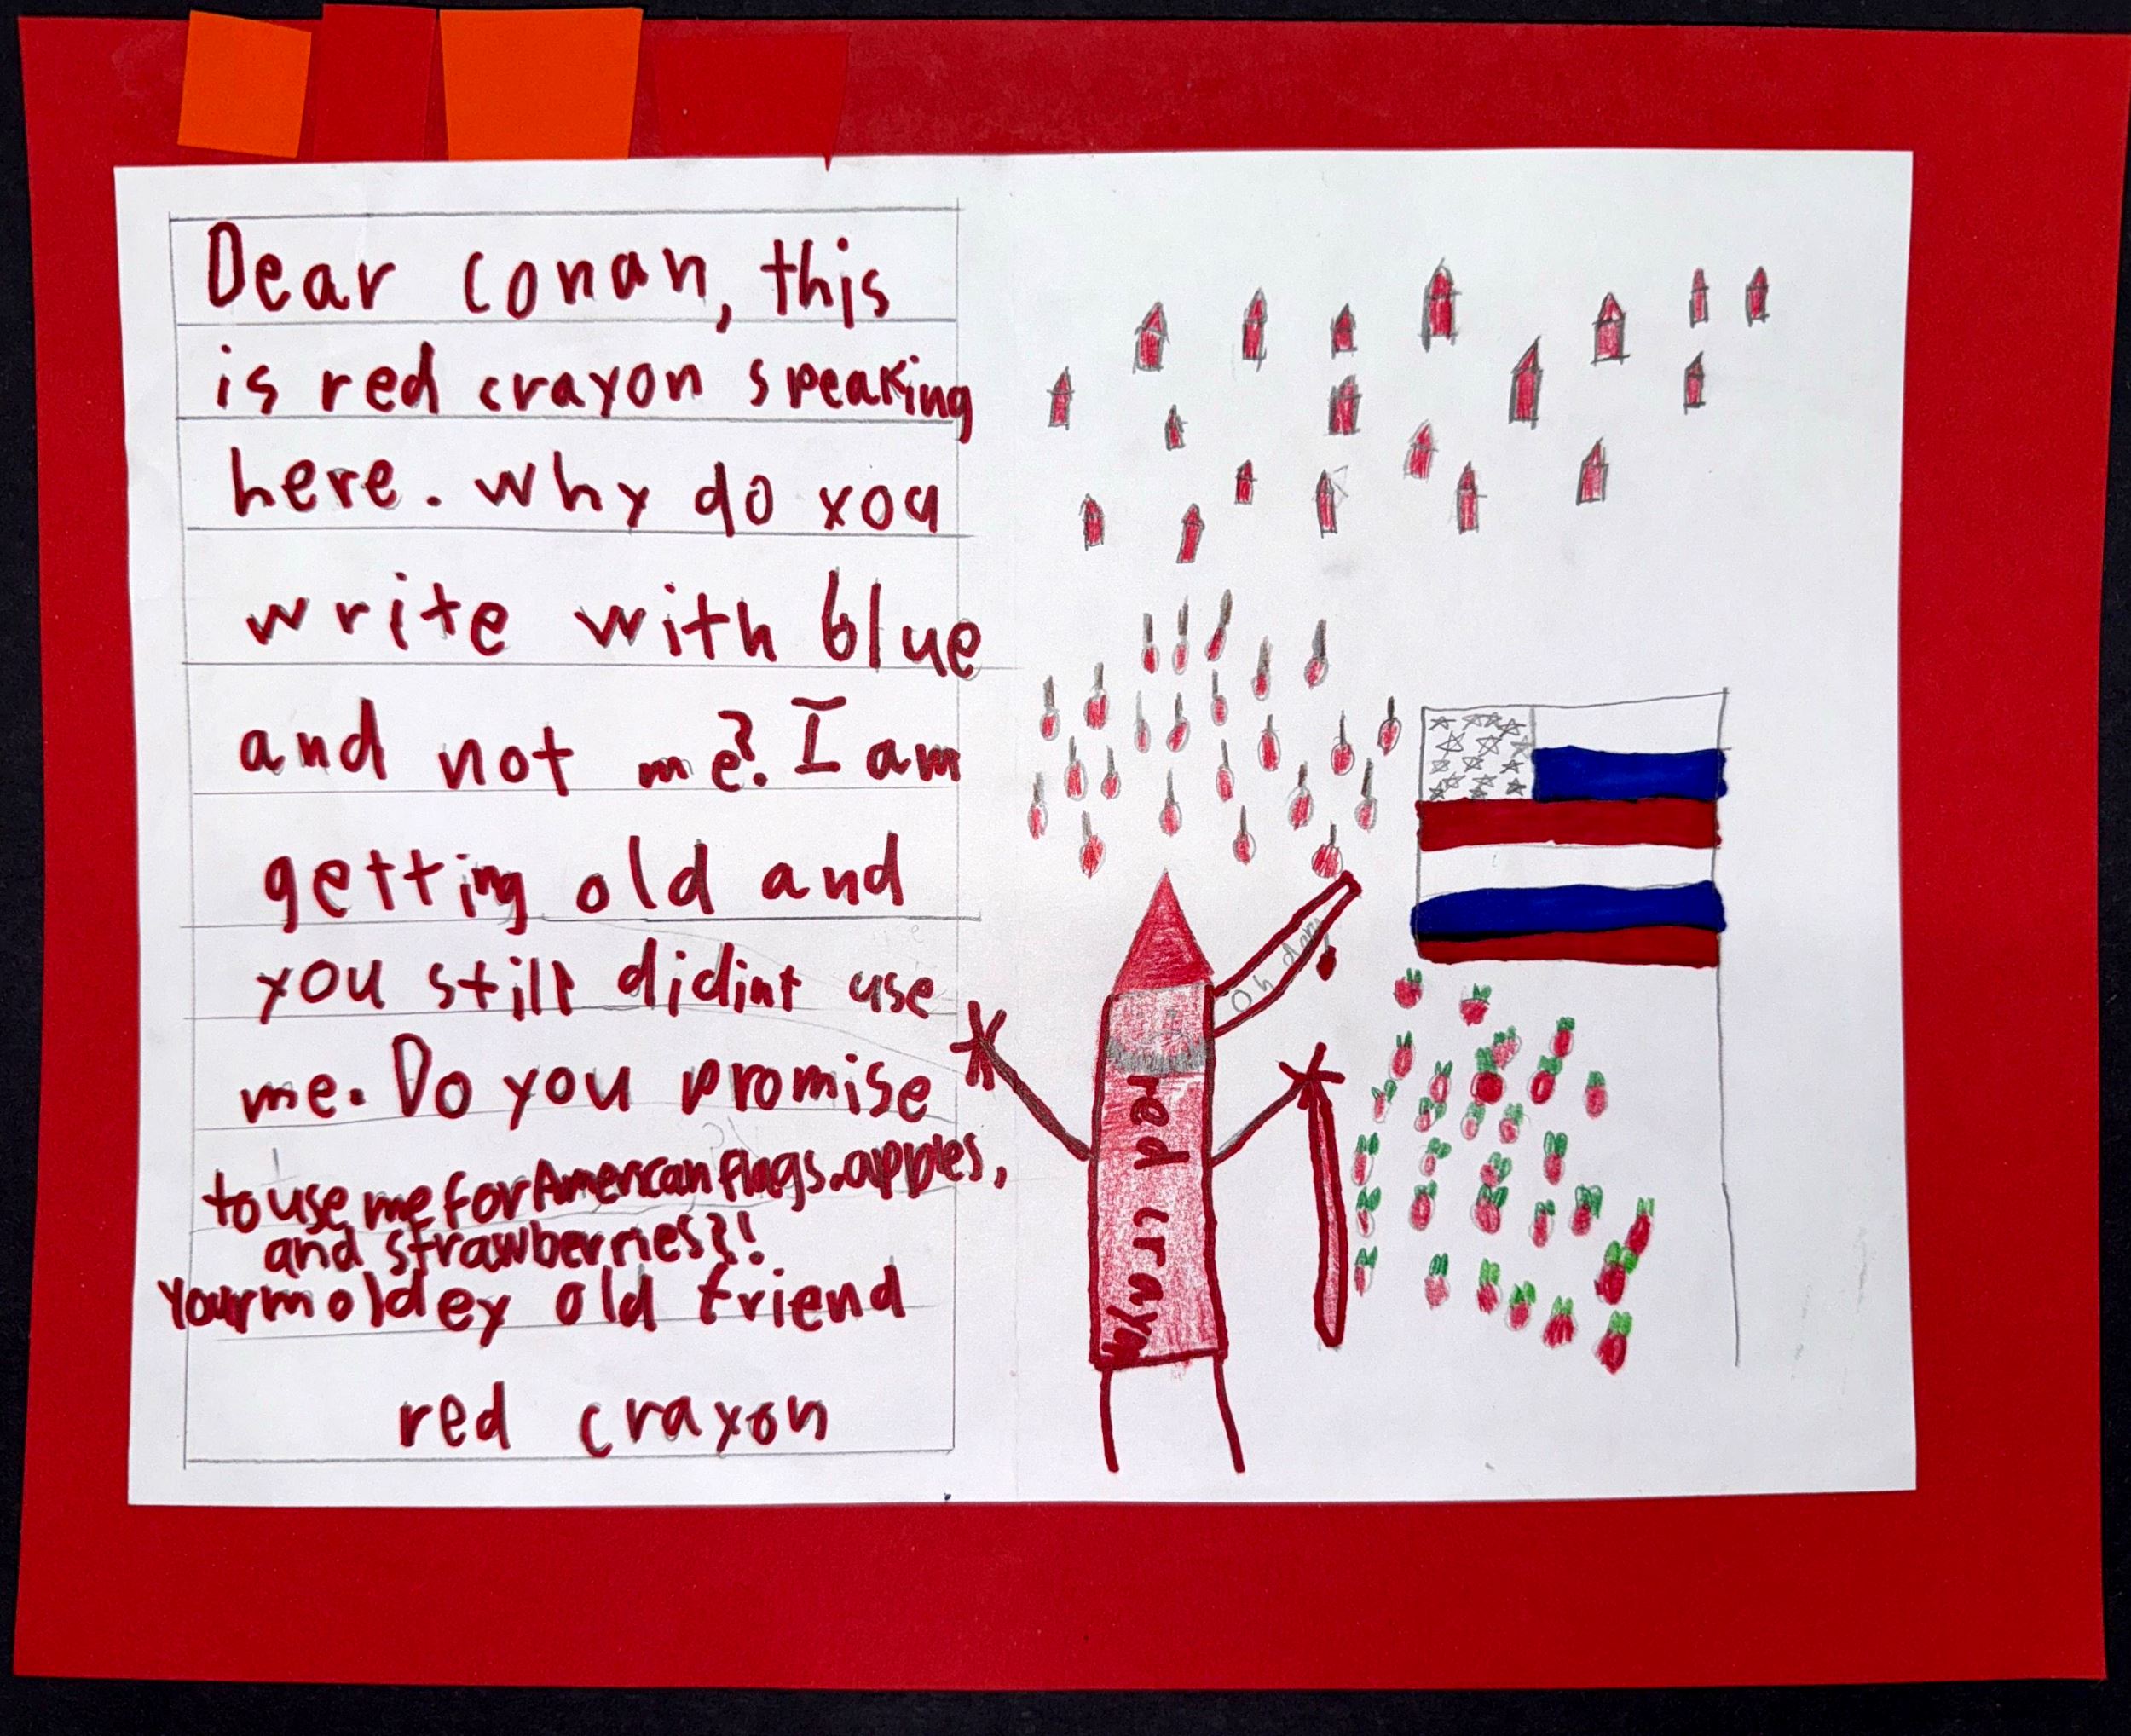 Dear conan, this
is red crayon speaking
here. why do you
write with blue
and not me?. I am
getting old and
you still didint use
me. Do you promise
to use me for American flags. apples,
and strawberries?!
Your moldey old friend
red crayon
Oh
red crayon